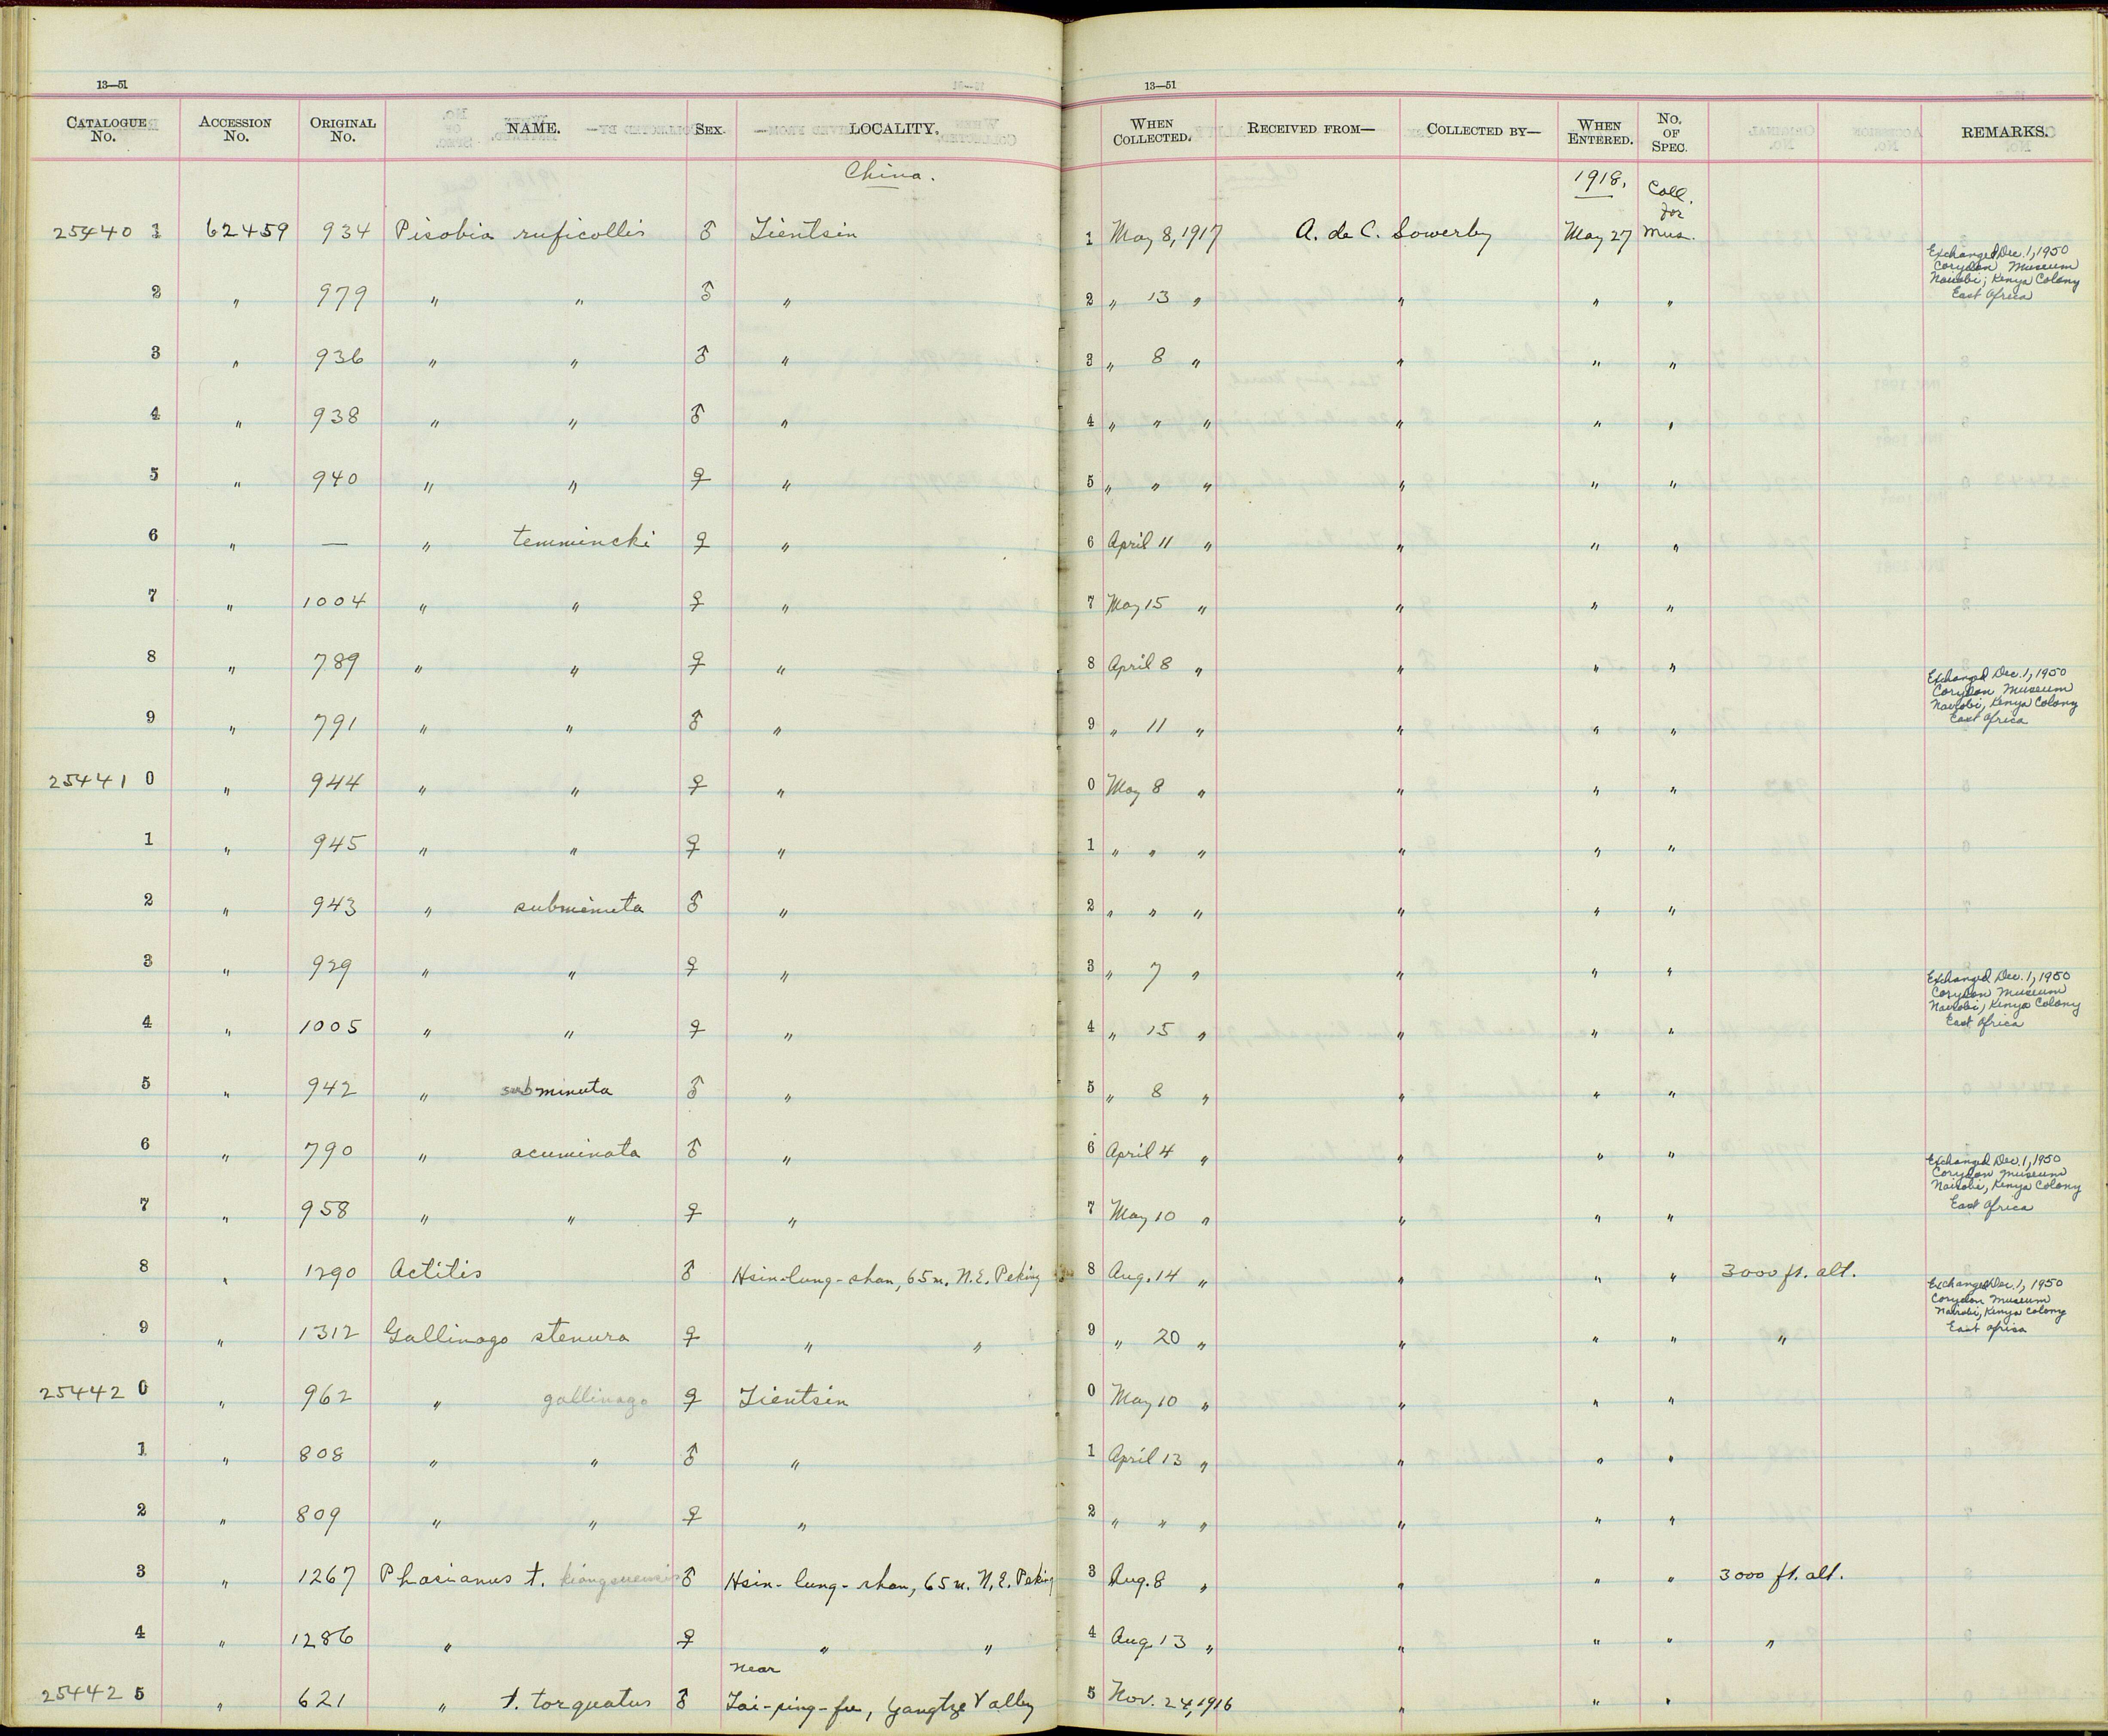 13—51
13—51
CATALOGUE No. ACCESSION No. ORIGINAL No. NAME. SEX. LOCALITY. WHEN COLLECTED. RECEIVED FROM— COLLECTED BY— WHEN ENTERED. No. OF SPEC. REMARKS.
China. 1918. Coll. for
25440 1 62459 934 Pisobia ruficollis ♂ Tientsin 1 May 8, 1917 A. de C. Sowerby May 27 Mus.
Exchanged Dec. 1, 1950
Corydon Museum
Nairobi, Kenya Colony
East Africa
2 " 979 " " ♂ " 2 " 13 " " " "
3 " 936 " " ♂ " 3 " 8 " " " "
4 " 938 " " ♂ " 4 " " " " " "
5 " 940 " " ♀ " 5 " " " " " "
6 " — " temmincki ♀ " 6 April 11 " " " "
7 " 1004 " " ♀ " 7 May 15 " " " "
8 " 789 " " ♀ " 8 April 8 " " " "
Exchanged Dec. 1, 1950
Corydon Museum
Nairobi, Kenya Colony
East Africa
9 " 791 " " ♂ " 9 " 11 " " " "
25441 0 " 944 " " ♀ " 0 May 8 " " " "
1 " 945 " " ♀ " 1 " " " " " "
2 " 943 " subminuta ♂ " 2 " " " " " "
3 " 929 " " ♀ " 3 " 7 " " " "
Exchanged Dec. 1, 1950
Corydon Museum
Nairobi, Kenya Colony
East Africa
4 " 1005 " " ♀ " 4 " 15 " " " "
5 " 942 " subminuta ♂ " 5 " 8 " " " "
6 " 790 " acuminata ♂ " 6 April 4 " " " "
Exchanged Dec. 1, 1950
Corydon Museum
Nairobi, Kenya Colony
East Africa
7 " 958 " " ♀ " 7 May 10 " " " "
8 " 1290 Actitis ♂ Hsin-lung-shan, 65 m. N.E. Peking 8 Aug. 14 " " " " 3000 ft. alt.
Exchanged Dec. 1, 1950
Corydon Museum
Nairobi, Kenya Colony
East Africa
9 " 1312 Gallinago stenura ♀ " " 9 " 20 " " " " "
25442 0 " 962 " gallinago ♀ Tientsin 0 May 10 " " " "
1 " 808 " " ♂ " 1 April 13 " " " "
2 " 809 " " ♀ " 2 " " " " " "
3 " 1267 Phasianus t. kiangsuensis ♂ Hsin-lung-shan, 65 m. N.E. Peking 3 Aug. 8 " " " " 3000 ft. alt.
4 " 1286 " ♀ " " 4 Aug. 13 " " " " "
near
25442 5 " 621 " t. torquatus ♂ Tai-ping-fu, Yangtze Valley 5 Nov. 24, 1916 " " "